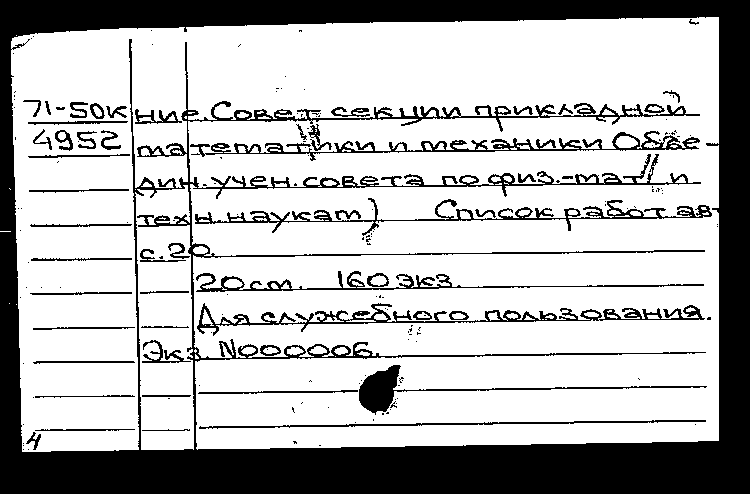 71-50к ние. Совет секции прикладной
4952 математики и механики Объе-
дин. учен. совета по физ.-мат. и
техн. наукам) Список работ авт
с. 20.
20 см. 160 экз.
Для служебного пользования.
Экз N000006.
4